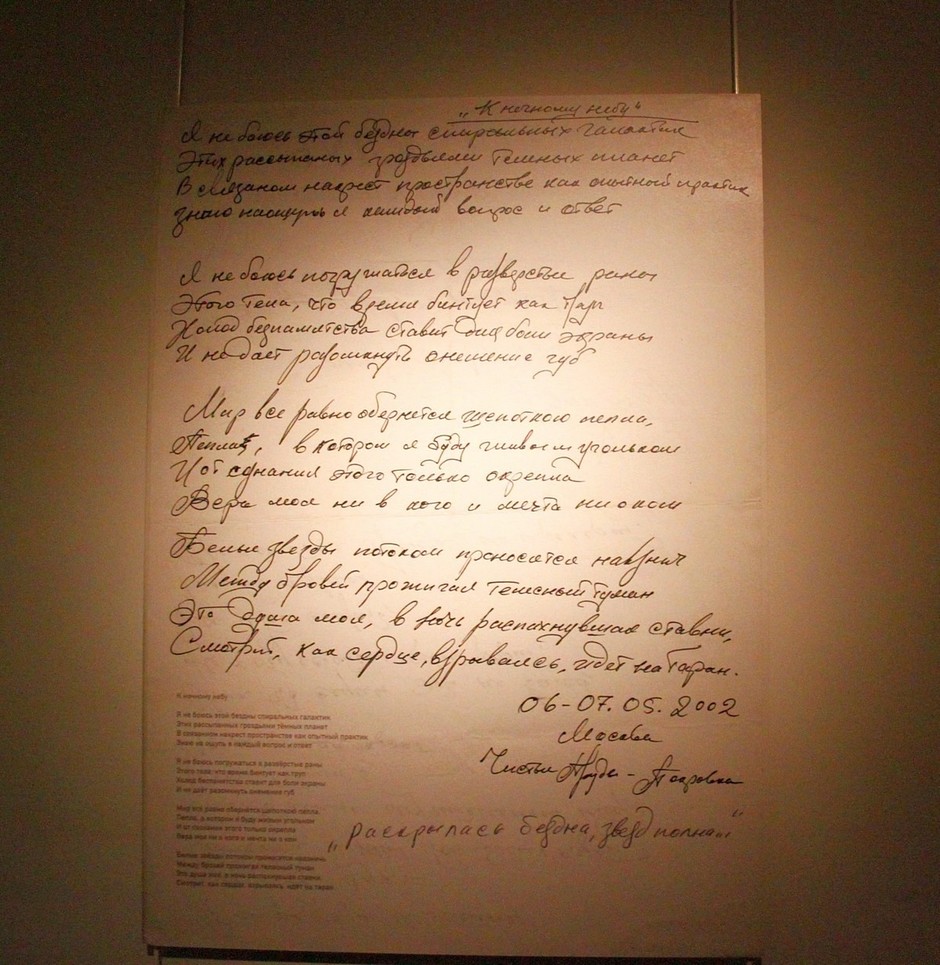 „К ночному небу“
Я не боюсь этой бездны спиральных галактик
Этих рассыпаных гроздьями темных планет
В связаном накрест пространстве как опытный практик
знаю наощупь я каждый вопрос и ответ
Я не боюсь погружаться в разверстые раны
Этого тела, что время бинтует как труп
Холод беспамятства ставит для боли экраны
И не дает разомкнуть онемение губ
Мир все равно обернется щепоткою пепла,
Пепла, в котором я буду живым угольком
И от сознания этого только окрепла
Вера моя ни в кого и мечта ни о ком
Белые звезды потоком проносятся навзничь
Между бровей прожигая телесный туман
Это душа моя, в ночь распахнувшая ставни,
Смотрит, как сердце, взрываясь, идет на таран.
06-07.05.2002
Москва
Чистые Пруды - Покровка
„раскрылась бездна, звезд полна...“
К ночному небу
Я не боюсь этой бездны спиральных галактик
Этих рассыпанных гроздьями тёмных планет
В связанном накрест пространстве как опытный практик
Знаю на ощупь я каждый вопрос и ответ
Я не боюсь погружаться в развёрстые раны
Этого тела что время бинтует как труп
Холод беспамятства ставит для боли экраны
И не даёт разомкнуть онемение губ
Мир всё равно обернётся щепоткой пепла,
Пепла, в котором я буду живым угольком
И от сознания этого только окрепла
Вера моя ни в кого и мечта ни о ком
Белые звёзды потоком проносятся навзничь
Между бровей прожигая телесный туман
Это душа моя, в ночь распахнувшая ставни,
Смотрит, как сердце, взрываясь, идёт на таран.